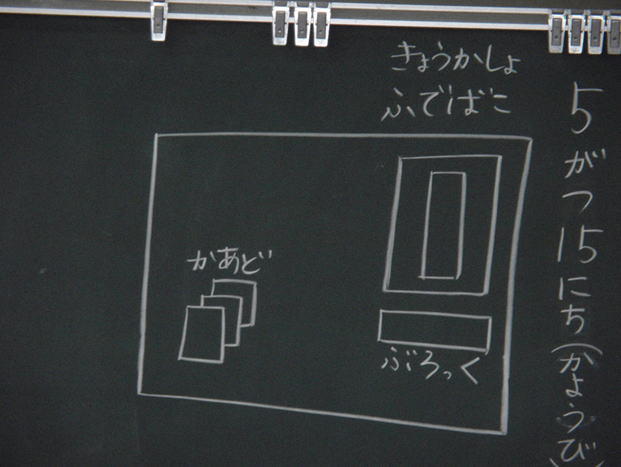 5がつ15にち(かようび)
きょうかしょ
ふでばこ
かあど
ぶろっく